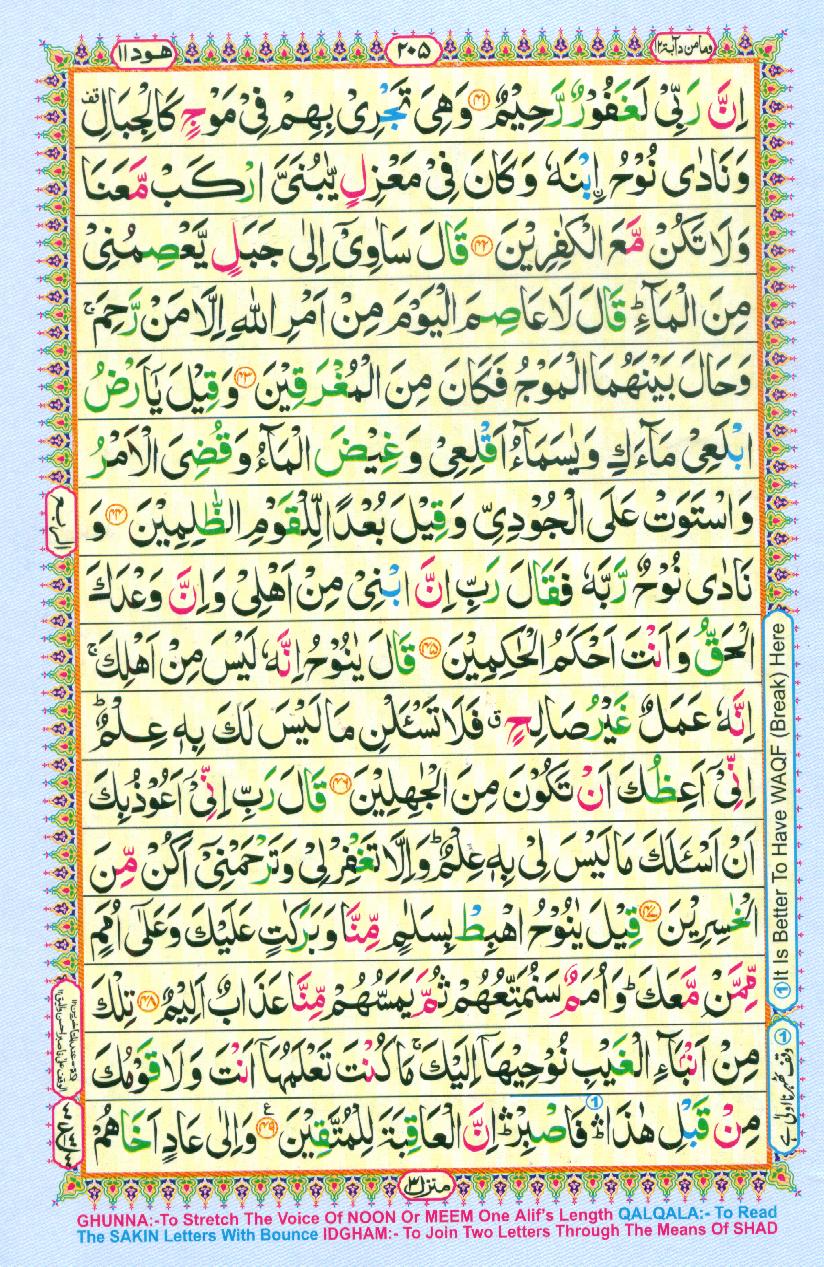 ومامن دآبة ١٢
٢٠٥
هود ١١
اِنَّ رَبِّیْ لَغَفُوْرٌ رَّحِیْمٌ ﴿۴۱﴾ وَهِیَ تَجْرِیْ بِهِمْ فِیْ مَوْجٍ كَالْجِبَالِ قف
وَنَادٰی نُوْحُ اِۨبْنَهٗ وَكَانَ فِیْ مَعْزِلٍ یّٰبُنَیَّ ارْكَبْ مَّعَنَا
وَلَا تَكُنْ مَّعَ الْكٰفِرِیْنَ ﴿۴۲﴾ قَالَ سَاٰوِیْۤ اِلٰی جَبَلٍ یَّعْصِمُنِیْ
مِنَ الْمَآءِ ؕ قَالَ لَا عَاصِمَ الْیَوْمَ مِنْ اَمْرِ اللّٰهِ اِلَّا مَنْ رَّحِمَ ۚ
وَحَالَ بَیْنَهُمَا الْمَوْجُ فَكَانَ مِنَ الْمُغْرَقِیْنَ ﴿۴۳﴾ وَقِیْلَ یٰۤاَرْضُ
ابْلَعِیْ مَآءَكِ وَیٰسَمَآءُ اَقْلِعِیْ وَغِیْضَ الْمَآءُ وَقُضِیَ الْاَمْرُ
وَاسْتَوَتْ عَلَی الْجُوْدِیِّ وَقِیْلَ بُعْدًا لِّلْقَوْمِ الظّٰلِمِیْنَ ﴿۴۴﴾ وَ
الربع
نَادٰی نُوْحٌ رَّبَّهٗ فَقَالَ رَبِّ اِنَّ ابْنِیْ مِنْ اَهْلِیْ وَاِنَّ وَعْدَكَ
الْحَقُّ وَاَنْتَ اَحْكَمُ الْحٰكِمِیْنَ ﴿۴۵﴾ قَالَ یٰنُوْحُ اِنَّهٗ لَیْسَ مِنْ اَهْلِكَ ۚ
اِنَّهٗ عَمَلٌ غَیْرُ صَالِحٍ ۗ فَلَا تَسْـَٔلْنِ مَا لَیْسَ لَكَ بِهٖ عِلْمٌ ؕ
اِنِّیْۤ اَعِظُكَ اَنْ تَكُوْنَ مِنَ الْجٰهِلِیْنَ ﴿۴۶﴾ قَالَ رَبِّ اِنِّیْۤ اَعُوْذُ بِكَ
اَنْ اَسْـَٔلَكَ مَا لَیْسَ لِیْ بِهٖ عِلْمٌ ؕ وَاِلَّا تَغْفِرْ لِیْ وَتَرْحَمْنِیْۤ اَكُنْ مِّنَ
الْخٰسِرِیْنَ ﴿۴۷﴾ قِیْلَ یٰنُوْحُ اهْبِطْ بِسَلٰمٍ مِّنَّا وَبَرَكٰتٍ عَلَیْكَ وَعَلٰۤی اُمَمٍ
مِّمَّنْ مَّعَكَ ؕ وَاُمَمٌ سَنُمَتِّعُهُمْ ثُمَّ یَمَسُّهُمْ مِّنَّا عَذَابٌ اَلِیْمٌ ﴿۴۸﴾ تِلْكَ
مِنْ اَنْۢبَآءِ الْغَیْبِ نُوْحِیْهَاۤ اِلَیْكَ ۚ مَا كُنْتَ تَعْلَمُهَاۤ اَنْتَ وَلَا قَوْمُكَ
مِنْ قَبْلِ هٰذَا ۛؕ فَاصْبِرْ ۛؕ اِنَّ الْعَاقِبَةَ لِلْمُتَّقِیْنَ ﴿۴۹﴾ ع وَاِلٰی عَادٍ اَخَاهُمْ
1
① It Is Better To Have WAQF (Break) Here
منزل ٣
GHUNNA:-To Stretch The Voice Of NOON Or MEEM One Alif's Length QALQALA:- To Read
The SAKIN Letters With Bounce IDGHAM:- To Join Two Letters Through The Means Of SHAD